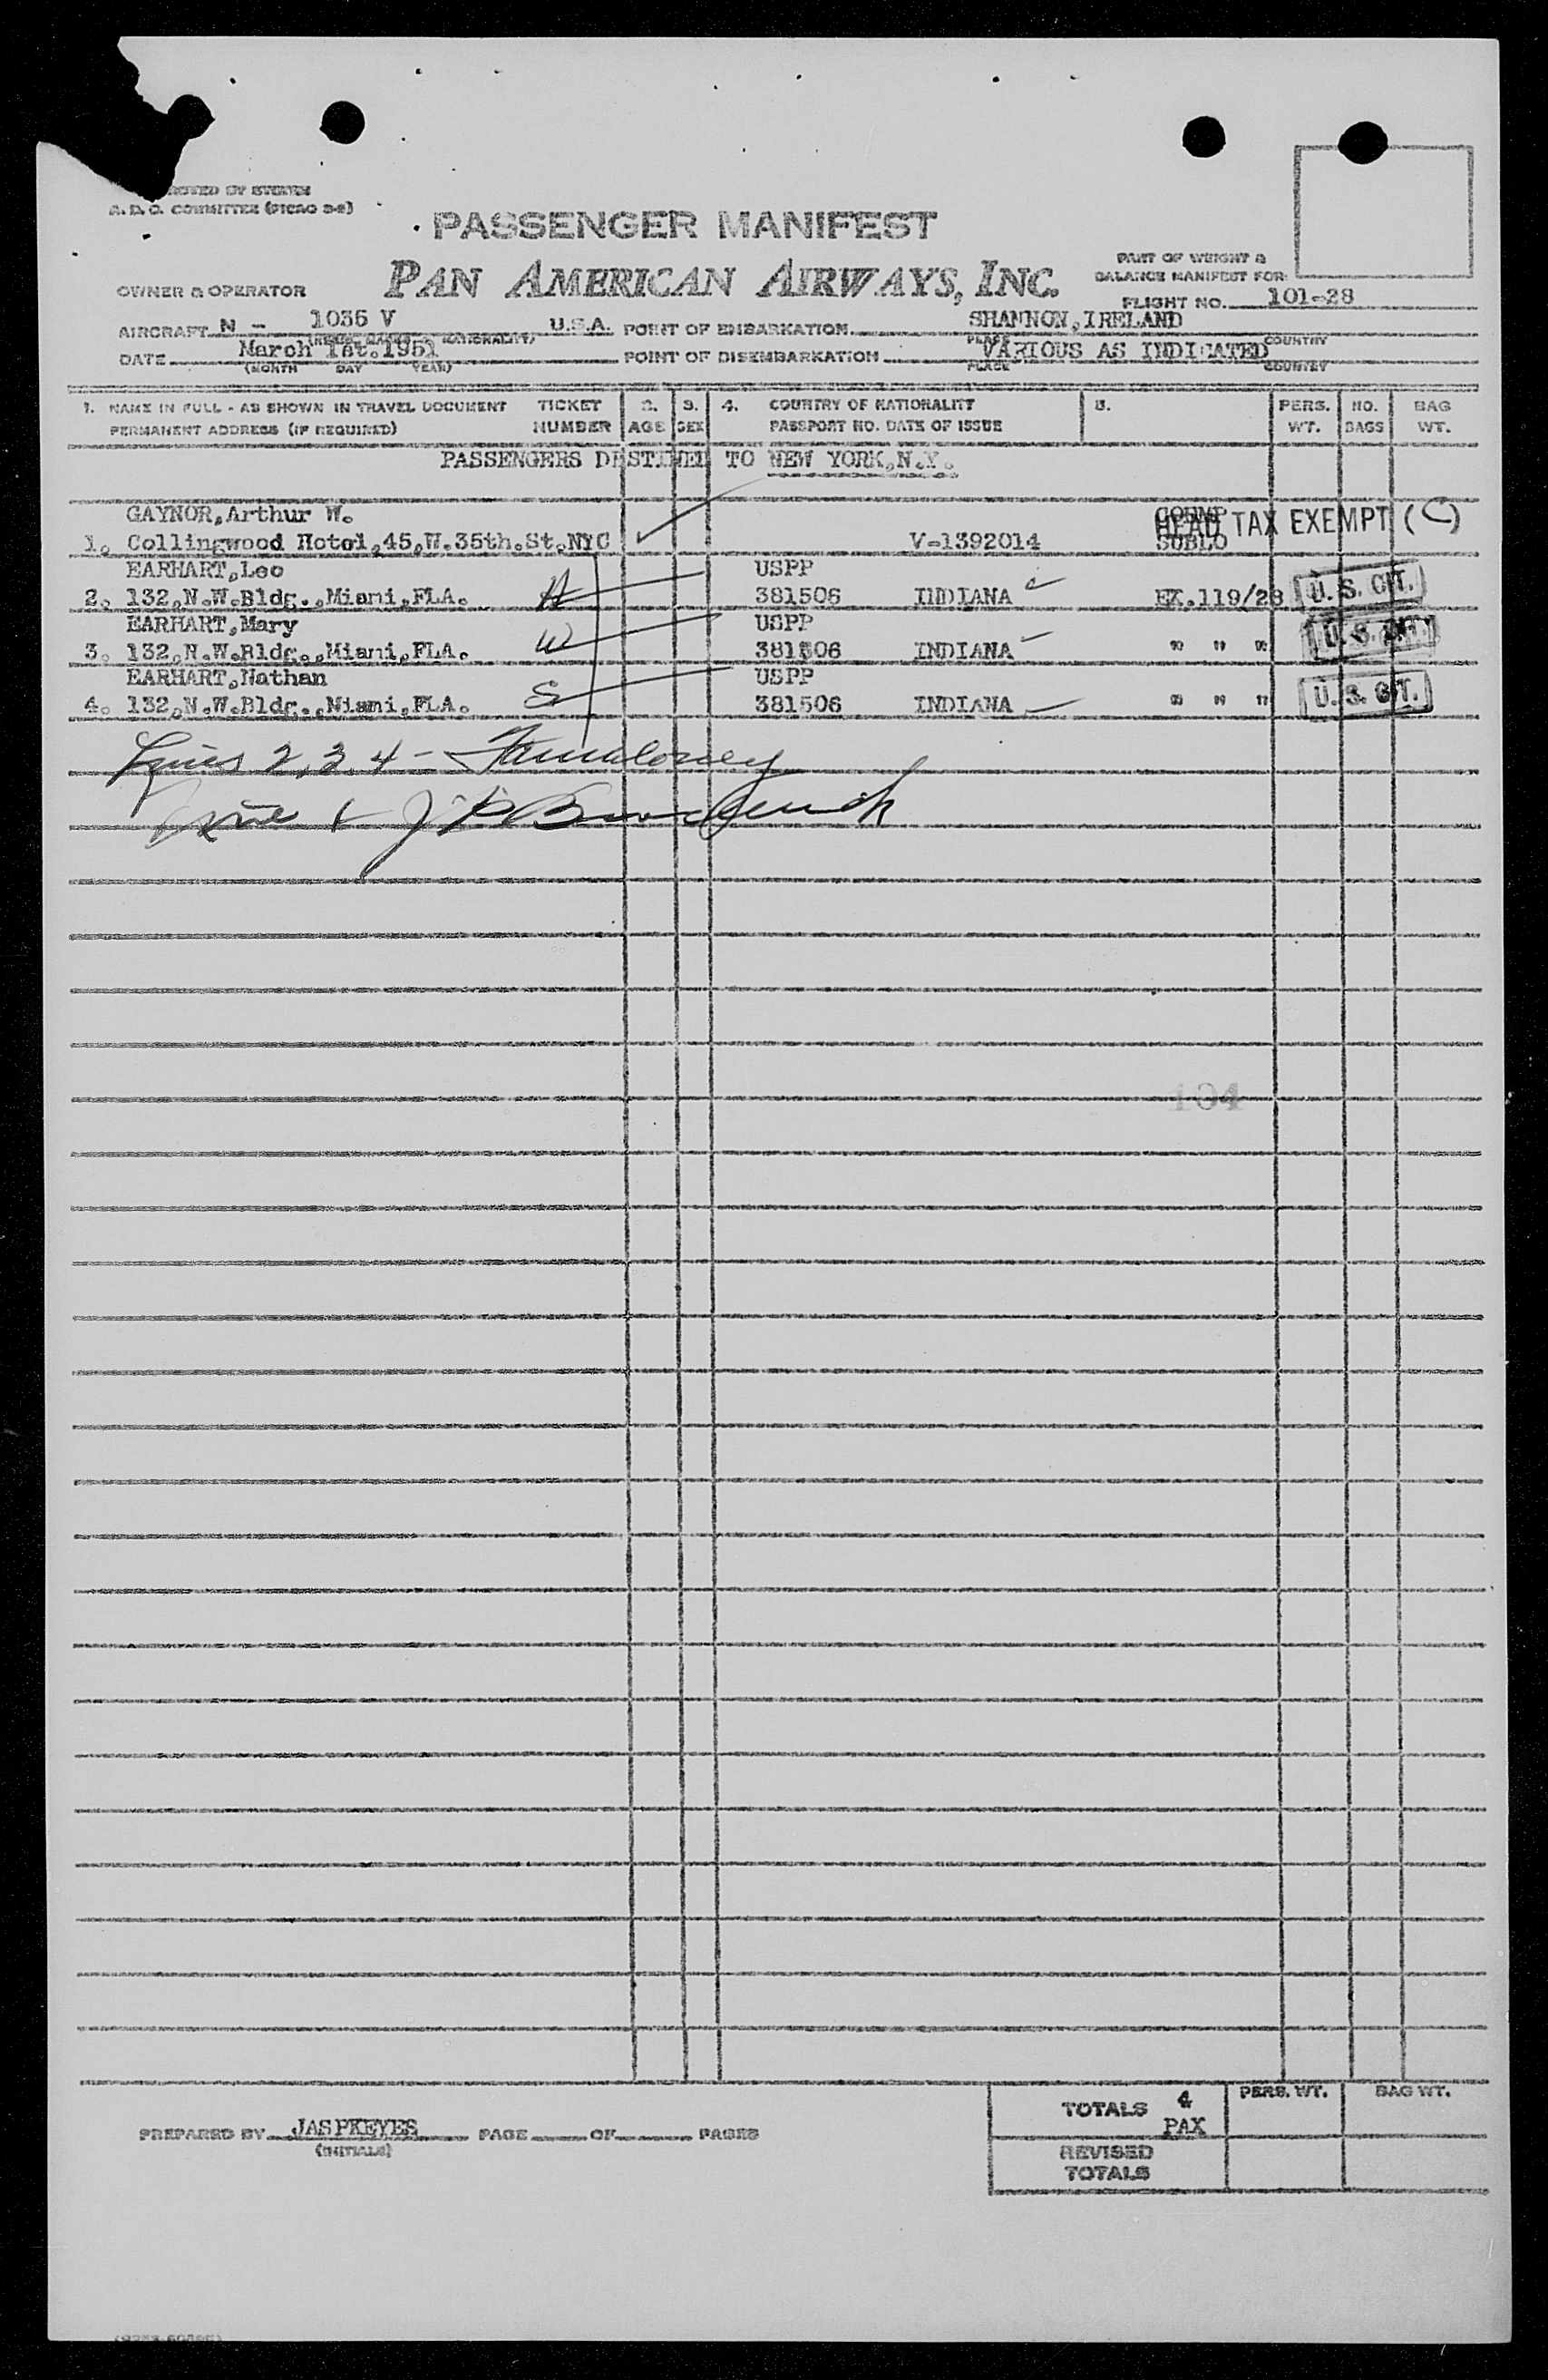 A. D. O. COMMITTEE (PICAO 3-2)
PASSENGER MANIFEST
PAN AMERICAN AIRWAYS, INC.
PART OF WEIGHT &
BALANCE MANIFEST FOR:
OWNER & OPERATOR
FLIGHT NO. 101-28
AIRCRAFT N - 1035 V U.S.A. POINT OF EMBARKATION SHANNON, IRELAND
PLACE COUNTRY
DATE March 1st. 1951 POINT OF DISEMBARKATION VARIOUS AS INDICATED
(MONTH DAY YEAR) PLACE COUNTRY
1. NAME IN FULL - AS SHOWN IN TRAVEL DOCUMENT TICKET 2. 3. 4. COUNTRY OF NATIONALITY 5. PERS. NO. BAG
PERMANENT ADDRESS (IF REQUIRED) NUMBER AGE SEX PASSPORT NO. DATE OF ISSUE WT. BAGS WT.
PASSENGERS DESTINED TO NEW YORK, N.Y.
GAYNOR, Arthur W. HEAD TAX EXEMPT (C)
1. Collingwood Hotel, 45, W. 35th. St. NYC V-1392014
EARHART, Leo USPP
2. 132, N.W. Bldg., Miami, FLA. H 381506 INDIANA EX. 119/28 U. S. CIT.
EARHART, Mary USPP
3. 132, N.W. Bldg., Miami, FLA. W 381506 INDIANA " " " U. S. CIT.
EARHART, Nathan USPP
4. 132, N.W. Bldg., Miami, FLA. S 381506 INDIANA " " " U. S. CIT.
Lines 2, 3, 4 -
104
TOTALS 4 PAX PERS. WT. BAG WT.
PREPARED BY JASPKEYES PAGE OF PAGES
(INITIALS)
REVISED
TOTALS